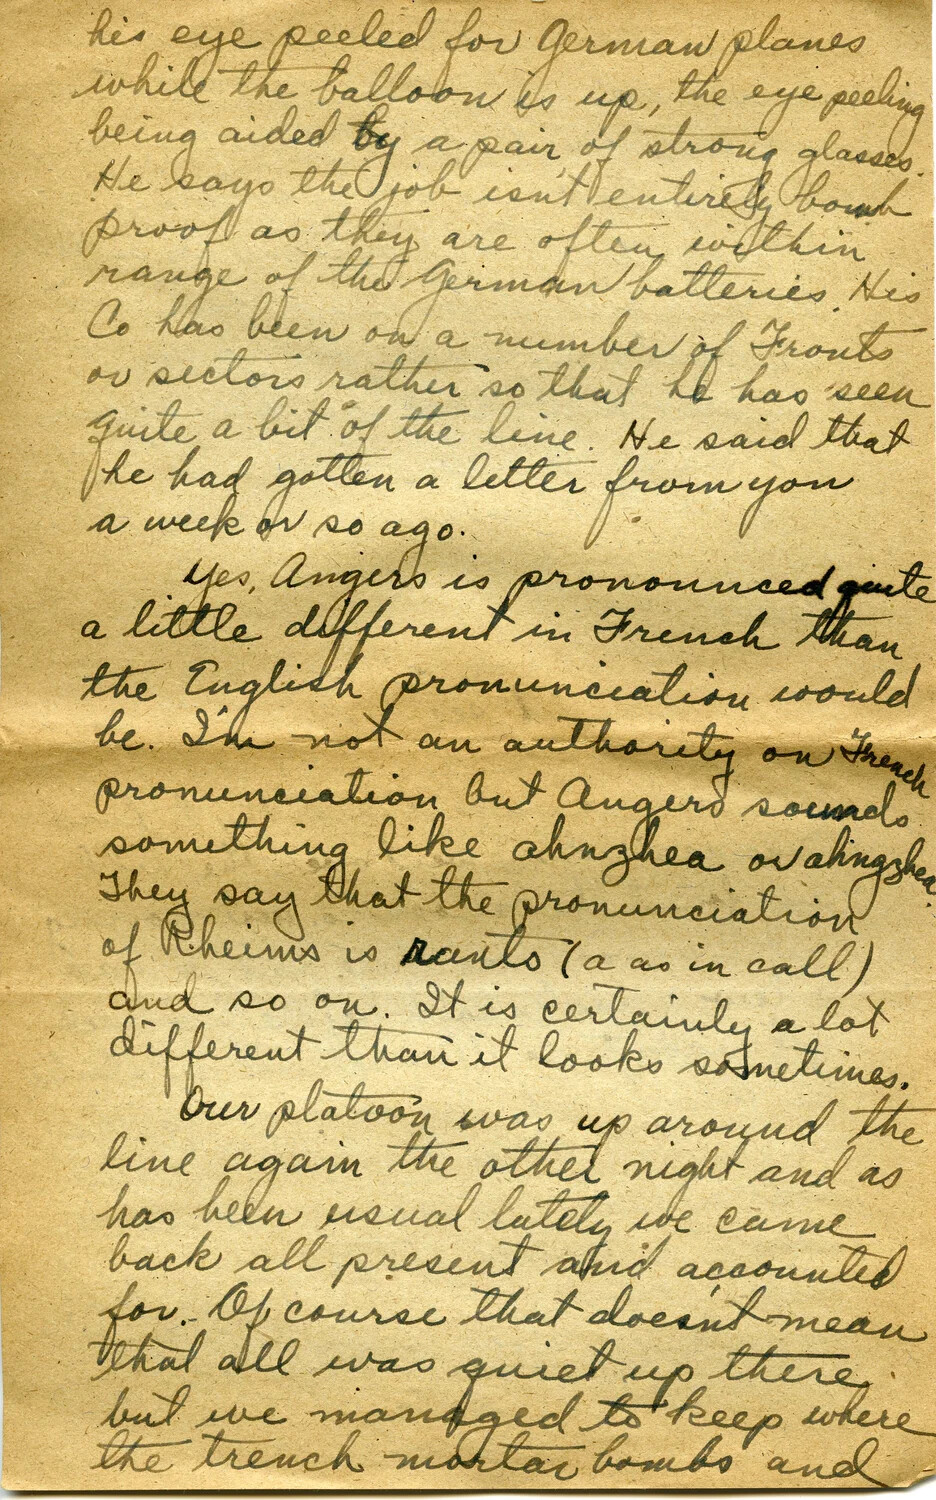 his eye peeled for German planes
while the balloon is up, the eye peeling
being aided by a pair of strong glasses.
He says the job isn't entirely bomb
proof as they are often within
range of the German batteries. His
Co has been on a number of Fronts
or sectors rather so that he has seen
quite a bit of the line. He said that
he had gotten a letter from you
a week or so ago.
Yes, Angers is pronounced quite
a little different in French than
the English pronunciation would
be. I'm not an authority on French
pronunciation but Angers sounds
something like ahnzhea or ahngzhea.
They say that the pronunciation
of Rheims is rants (a as in call)
and so on. It is certainly a lot
different than it looks sometimes.
Our platoon was up around the
line again the other night and as
has been usual lately we came
back all present and accounted
for. Of course that doesn't mean
that all was quiet up there
but we managed to keep where
the trench mortar bombs and